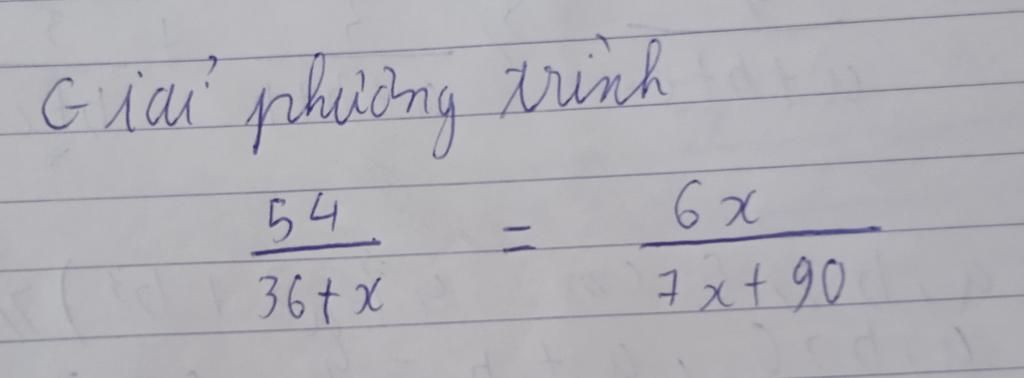 Giải phương trình
54/(36+x) = 6x/(7x+90)